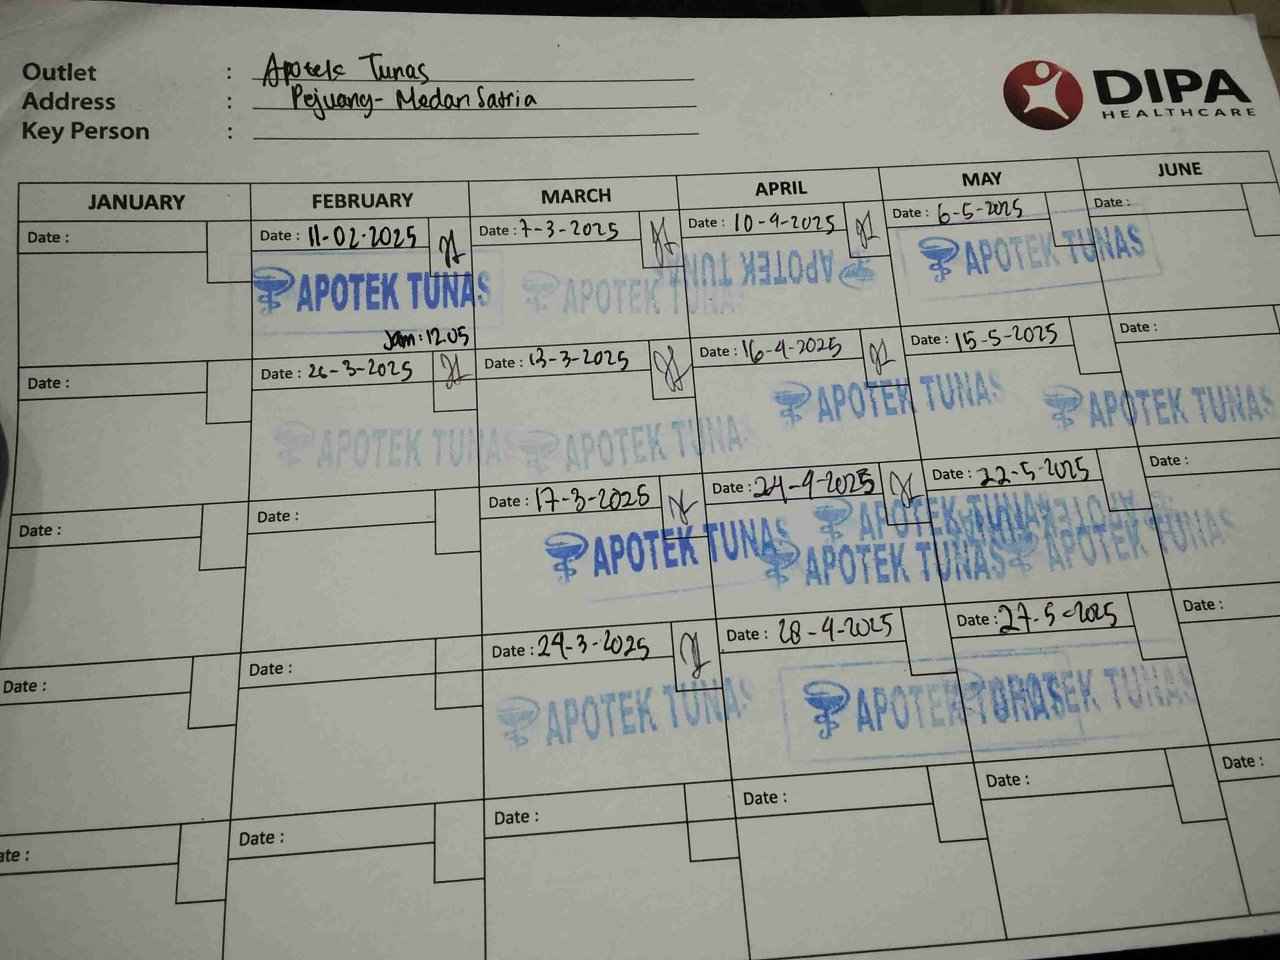 Outlet : Apotek Tunas
Address : Pejuang - Medan Satria
Key Person :
DIPA
HEALTHCARE
JANUARY FEBRUARY MARCH APRIL MAY JUNE
Date : Date : 11-02-2025 Date : 7-3-2025 Date : 10-4-2025 Date : 6-5-2025 Date :
APOTEK TUNAS APOTEK TUNAS APOTEK TUNAS APOTEK TUNAS
Jam : 12.05
Date : Date : 26-3-2025 Date : 13-3-2025 Date : 16-4-2025 Date : 15-5-2025 Date :
APOTEK TUNAS APOTEK TUNAS APOTEK TUNAS APOTEK TUNAS
Date : Date : Date : 17-3-2025 Date : 24-4-2025 Date : 22-5-2025 Date :
APOTEK TUNAS APOTEK TUNAS APOTEK TUNAS APOTEK TUNAS
Date : Date : Date : 24-3-2025 Date : 28-4-2025 Date : 27-5-2025 Date :
APOTEK TUNAS APOTEK TUNAS
Date : Date : Date : Date : Date :